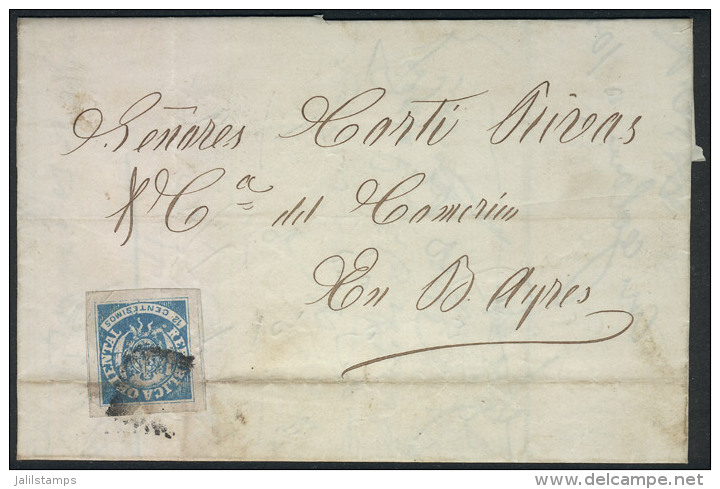 Señores Carti Rivas
& Cª del Comercio
En B. Ayres
12 CENTESIMOS
REPUBLICA ORIENTAL
Jalilstamps
delcampe.net